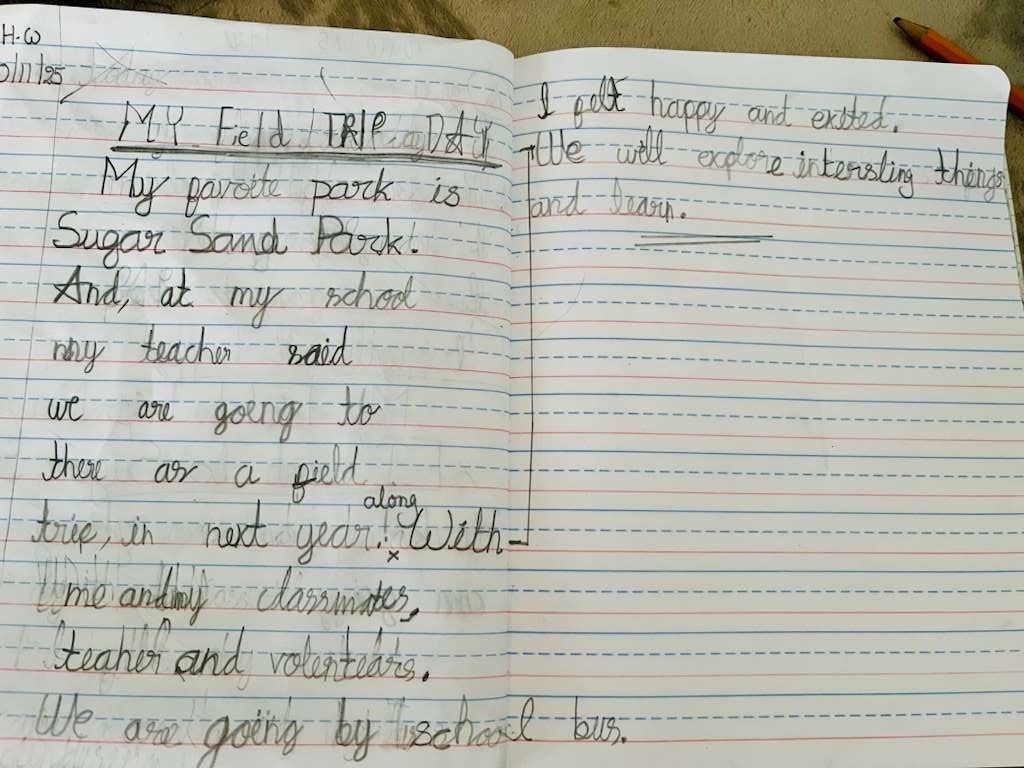 H.W
MY Field TRIP DAY
My favoite park is
Sugar Sand Park!
And, at my school
my teacher said
we are going to
there as a field
along
trip, in next year! With
me and my classmates,
teaher and volentears.
We are going by school bus.
I felt happy and exited.
We will explore intersting things
and learn.